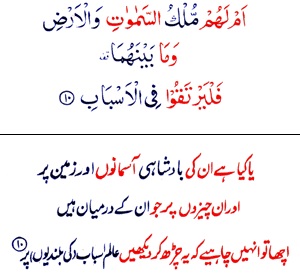 اَمْ لَهُمْ مُّلْكُ السَّمٰوٰتِ وَالْاَرْضِ
وَمَا بَيْنَهُمَا ۫
فَلْيَرْتَقُوْا فِي الْاَسْبَابِ ۝۱۰
یا کیا ہے ان کی بادشاہی آسمانوں اور زمین پر
اور ان چیزوں پر جو ان کے درمیان ہیں
اچھا تو انہیں چاہیے کہ یہ چڑھ کر دیکھیں عالم اسباب (کی بلندیوں) پر ۝۱۰